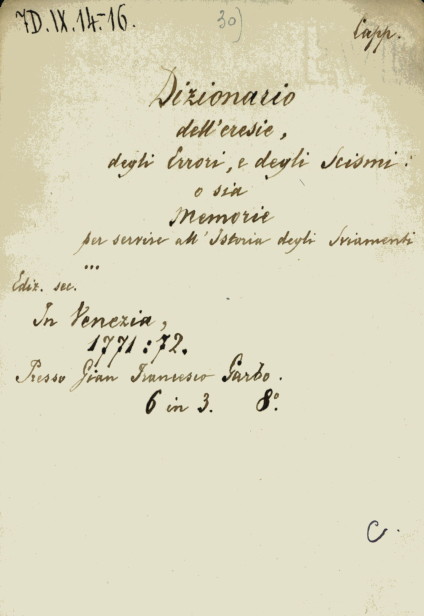 7D.IX.14-16.
30)
Capp.
Dizionario
dell'eresie,
degli Errori, e degli Scismi:
o sia
Memorie
per servire all'Istoria degli Sviamenti
...
Ediz. sec.
In Venezia,
1771:72.
Presso Gian Francesco Garbo.
6 in 3. 8º.
C.